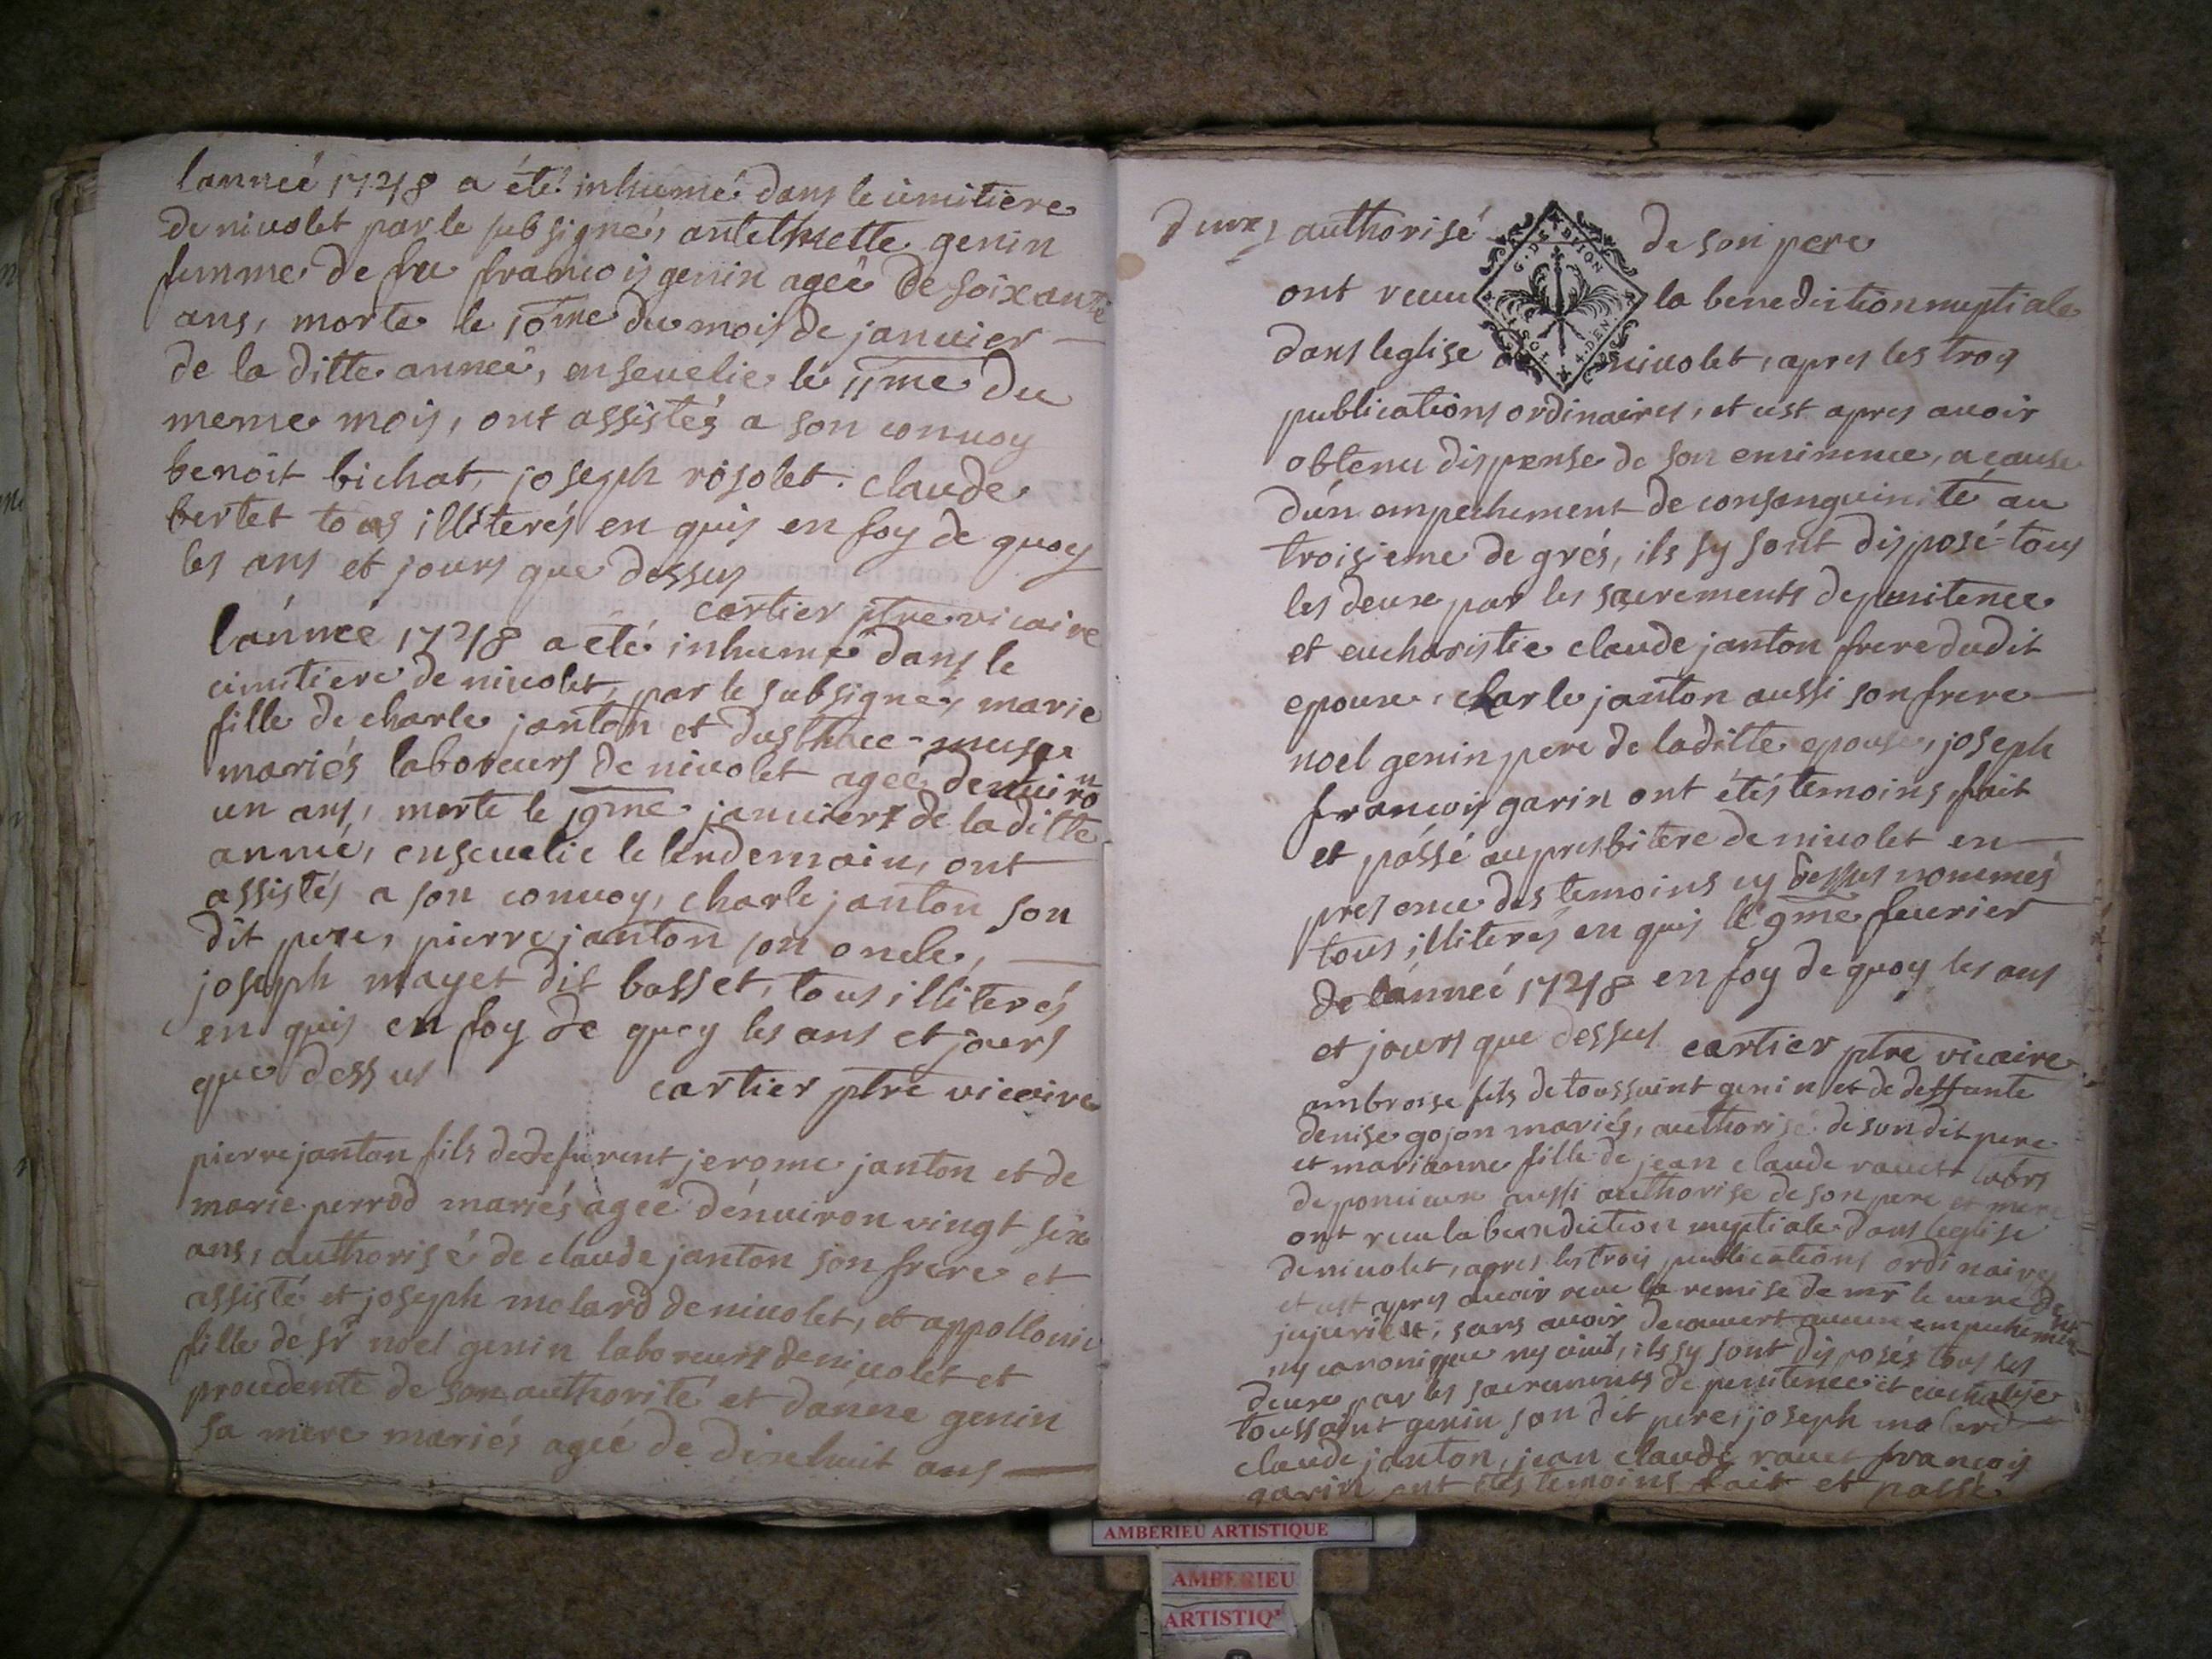 lanneé 1748 a été inhumé dans le cimitiere
de nivolet par le subsigné, antelmette genin
femme de feu francois genin ageé de soixante
ans, morte le 10me du mois de janvier
de la ditte anneé, ensevelie le 11me du
meme mois, ont assistés a son convoy
benoit bichat, joseph rosolet claude
bertet tous illiterés en quis en foy de quoy
les ans et jours que dessus
cartier ptre vicaire
lánneé 1748 a eté inhumé dans le
cimitiere de nivolet, par le subsigné, marie
fille de charle janton et
mariés laboreurs de nivolet ageé denviron
un ans, morte le 19me janvier de la ditte
anneé, ensevelie le lendemain, ont
assistés a son convoy, charle janton son
dit pere, pierre janton son oncle,
joseph mayet dit basset, tous illiterés
en quis en foy de quoy les ans et jours
que dessus
cartier ptre vicaire
pierre janton fils de defurent jerome janton et de
marie perrod mariés ageé dénviron vingt six
ans, authorisé de claude janton son frere et
assisté et joseph molard de nivolet, et appollonie
fille de sr noel genin laboreurs de nivolet et
procedente de son authorité et dánne genin
sa mere mariés ageé de dixhuit ans
deux authorisé de son pere
G. DE DIION
4. DEN.
ont receu la benediction nuptiale
dans leglise de nivolet, apres les troy
publications ordinaires, et cest apres avoir
obtenu dispense de son eminence, a cause
dún empechement de consanguinité au
troisieme de grés, ils sy sont disposé tous
les deux par les sacrements de penitence
et eucharistie claude janton frere dudit
epoux, charle janton aussi son frere
noel genin pere de laditte epouse, joseph
francois garin ont étés temoins fait
et pássé au presbitere de nivolet en
presence des temoins cy dessus nommés
tous illiterés en quis le 9me fevrier
de lánneé 1748 en foy de quoy les ans
et jours que dessus cartier ptre vicaire
ambroise fils de toussaint genin et de deffunte
denise gojon mariés, authorisé de son dit pere
et marianne fille de jean claude ravet labrs
de poncieux aussi authorise de son pere et mere
ont receu la benediction nuptiale dans leglise
de nivolet, apres les trois publications ordinaires
et cest apres avoir receu la remise de mr le curé de
jujurieux, sans avoir decouvert aucun empechement
ny canonique ny civil, ils sy sont disposés tous les
deux par les sacrements de penitence et eucharistie
toussaint genin son dit pere, joseph molard
claude janton, jean claude ravet francois
garin ont étés temoins fait et passé
AMBERIEU ARTISTIQUE
AMBERIEU
ARTISTIQ